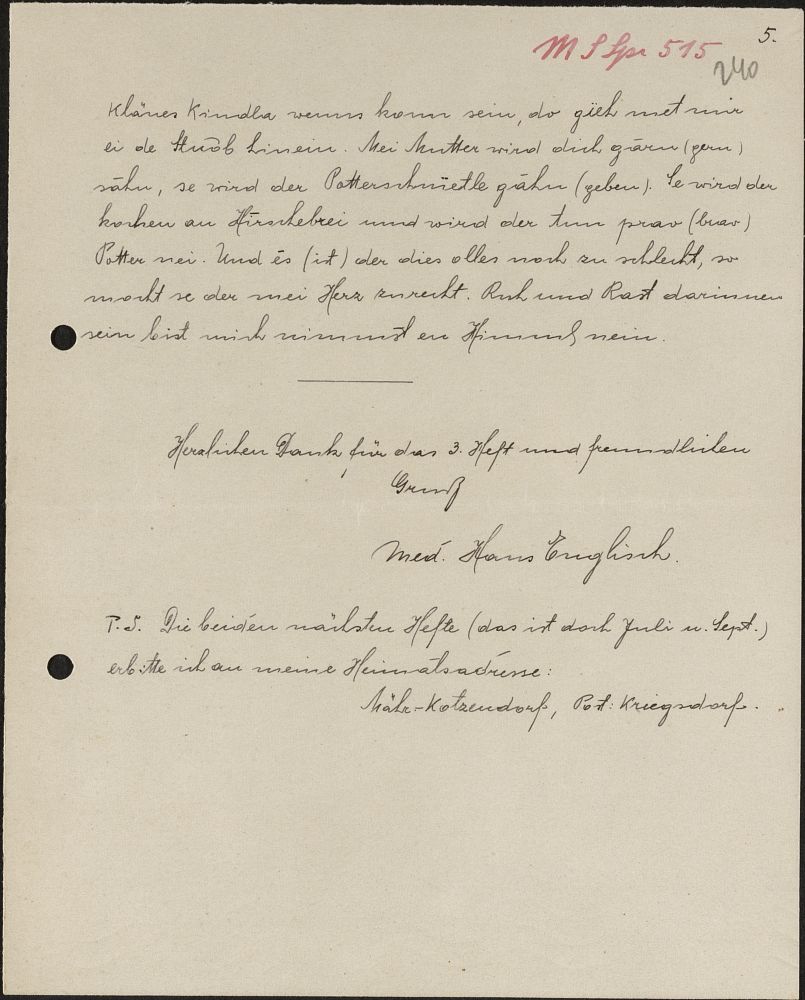 5.
M S Spr 515
240
Klänes Kindla wenns konn sein, do giëh met mir
ei de Stuöb hinein. Mei Mutter wird dich gärn (gern)
sähn, se wird der Potterschnietle gähn (geben). Se wird der
kochen an Hirschebrei und wird der tun prav (brav)
Potter nei. Und ës (ist) der dies olles noch zu schlecht, so
mocht se der mei Herz zurecht. Ruh und Rast darinnen
sein bist mich nimmst en Himml nein.
Herzlichen Dank für das 3. Heft und freundlichen
Gruß
Med. Hans Englisch.
P.S. Die beiden nächsten Hefte (das ist doch Juli u. Sept.)
erbitte ich an meine Heimatsadresse:
Mähr-Kotzendorf, Post: Kriegsdorf.